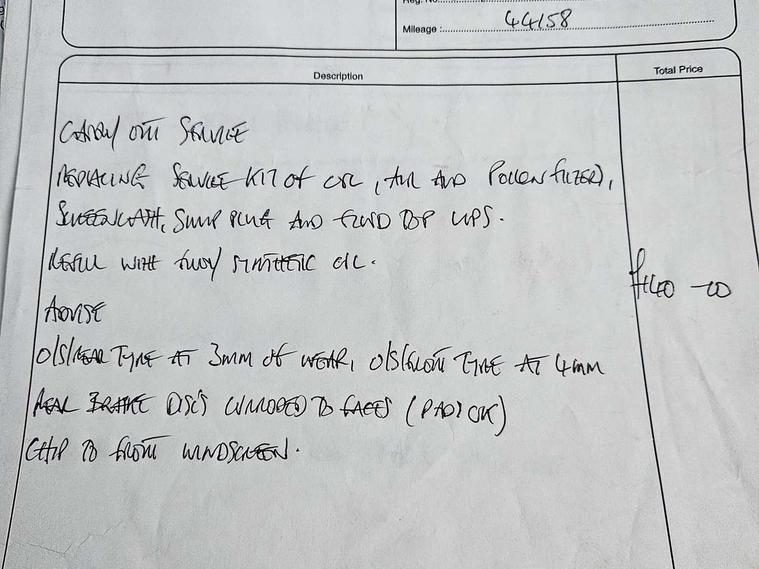 Reg. No.
Mileage :........ 44158
Description
Total Price
CARRY OUT SERVICE
REPLACING SERVICE KIT OF OIL, AIR AND POLLEN FILTER),
SCREENWASH, SUMP PLUG AND FLUID TOP UPS.
REFILL WITH FULLY SYNTHETIC OIL.
£140-00
ADVISE
O/S/REAR TYRE AT 3MM OF WEAR, O/S/FRONT TYRE AT 4MM
REAR BRAKE DISCS CORRODED TO FACES (PADS OK)
CHIP TO FRONT WINDSCREEN.